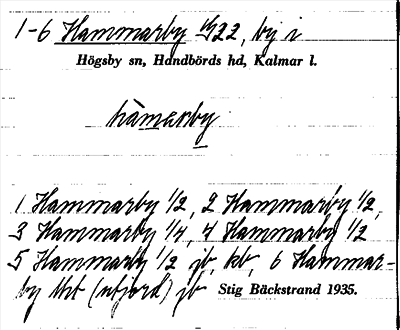 1-6 Hammarby by i
Högsby sn, Handbörds hd, Kalmar l.
hàmarby
1 Hammarby 1/2, 2 Hammarby 1/2,
3 Hammarby 1/4, 4 Hammarby 1/2
5 Hammarby 1/2 jb, kb, 6 Hammar-
by jb
Stig Bäckstrand 1935.